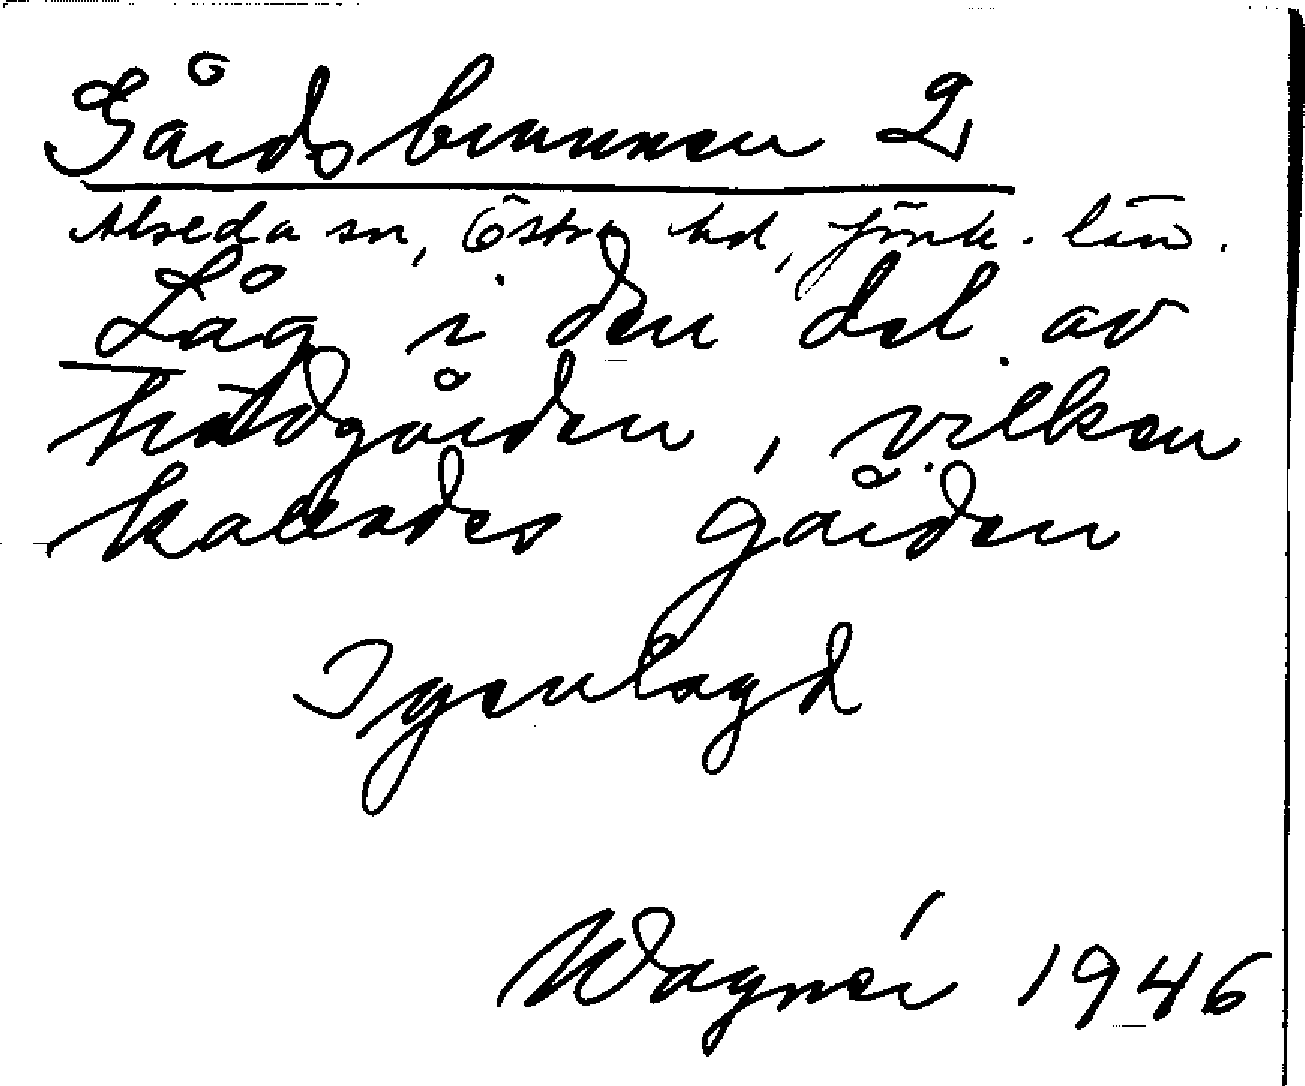 Gårdsbrunnen 2
Alseda sn, Östra hd, Jönk. län.
Låg i den del av
trädgården, vilken
kallades gården
Igenlagd
Wagnér 1946